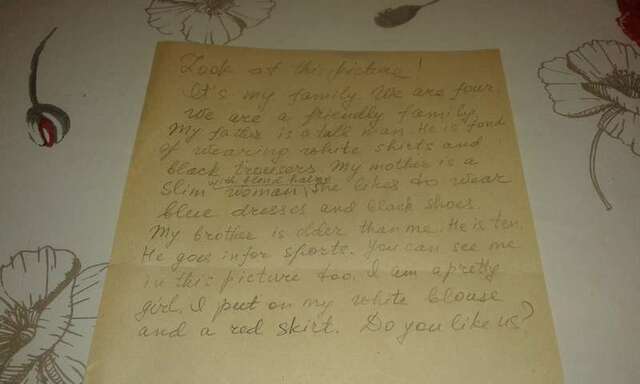 Look at this picture!
It's my family. We are four.
We are a friendly family.
My father is a tall man. He is fond
of wearing white shirts and
black trousers. My mother is a
with blond
slim woman, she likes to wear
blue dresses and black shoes.
My brother is older than me. He is ten.
He goes in for sports. You can see me
in this picture too. I am a pretty
girl. I put on my white blouse
and a red skirt. Do you like us?